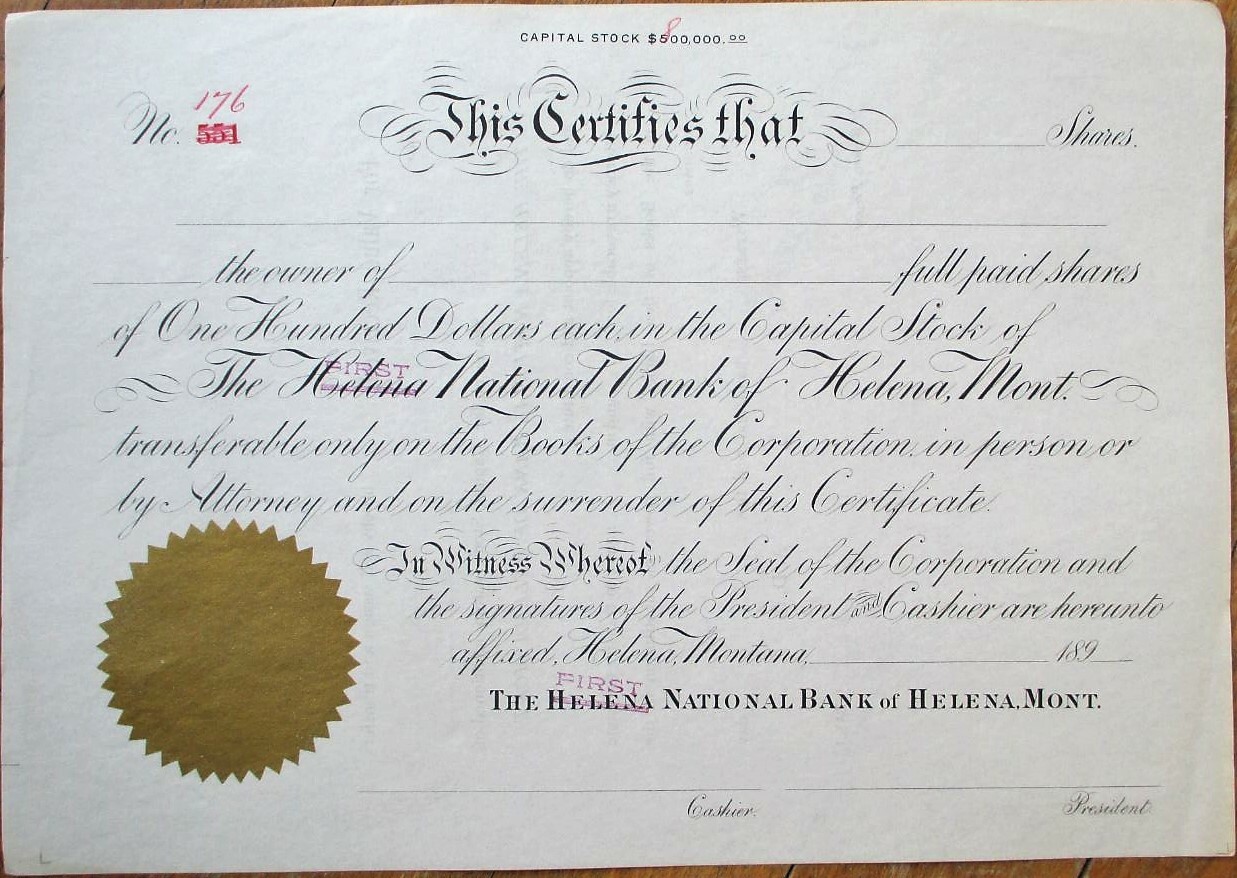 CAPITAL STOCK $500,000.00
8
176
No.
This Certifies that Shares.
the owner of full paid shares
of One Hundred Dollars each, in the Capital Stock of
FIRST
The Helena National Bank of Helena, Mont.
transferable only on the Books of the Corporation, in person or
by Attorney and on the surrender of this Certificate.
In Witness Whereof, the Seal of the Corporation and
the signatures of the President and Cashier are hereunto
affixed, Helena, Montana, 189
FIRST
THE HELENA NATIONAL BANK of HELENA, MONT.
Cashier. President.